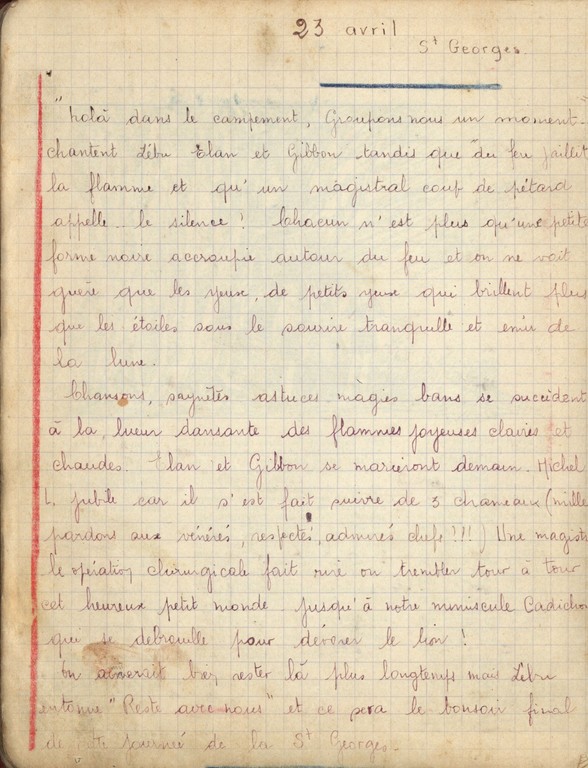 23 avril
St Georges
"holà dans le campement, Groupons nous un moment"
chantent Zébu Elan et Gibbon tandis que du feu jaillit
la flamme et qu'un magistral coup de pétard
appelle le silence! Chacun n'est plus qu'une petite
forme noire accroupie autour du feu et on ne voit
guère que les yeux, de petits yeux qui brillent plus
que les étoiles sous le sourire tranquille et ému de
la lune.
Chansons, saynètes astuces magies bans se succèdent
à la lueur dansante des flammes joyeuses claires et
chaudes. Elan et Gibbon se marieront demain. Michel
L. jubile car il s'est fait suivre de 3 chameaux (mille
pardons aux vénérés, respectés, admirés chefs!!!) Une magistra
le opération chirurgicale fait rire ou trembler tour à tour
cet heureux petit monde jusqu'à notre minuscule Cadichon
qui se débrouille pour dévorer le lion!
On aimerait bien rester là plus longtemps mais Zébu
entonne "Reste avec nous" et ce sera le bonsoir final
de journée de la St Georges.